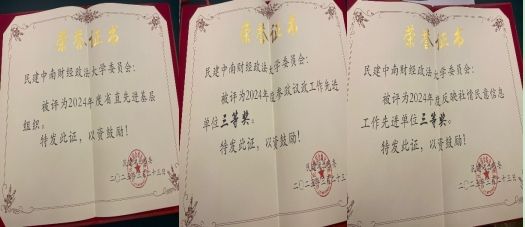 荣誉证书
民建中南财经政法大学委员会:
被评为2024年度省直先进基层
组织。
特发此证,以资鼓励!
二〇二五年二月二十三日
荣誉证书
民建中南财经政法大学委员会:
被评为2024年度参政议政工作先进
单位三等奖。
特发此证,以资鼓励!
二〇二五年二月二十三日
荣誉证书
民建中南财经政法大学委员会:
被评为2024年度反映社情民意信息
工作先进单位三等奖。
特发此证,以资鼓励!
二〇二五年二月二十三日